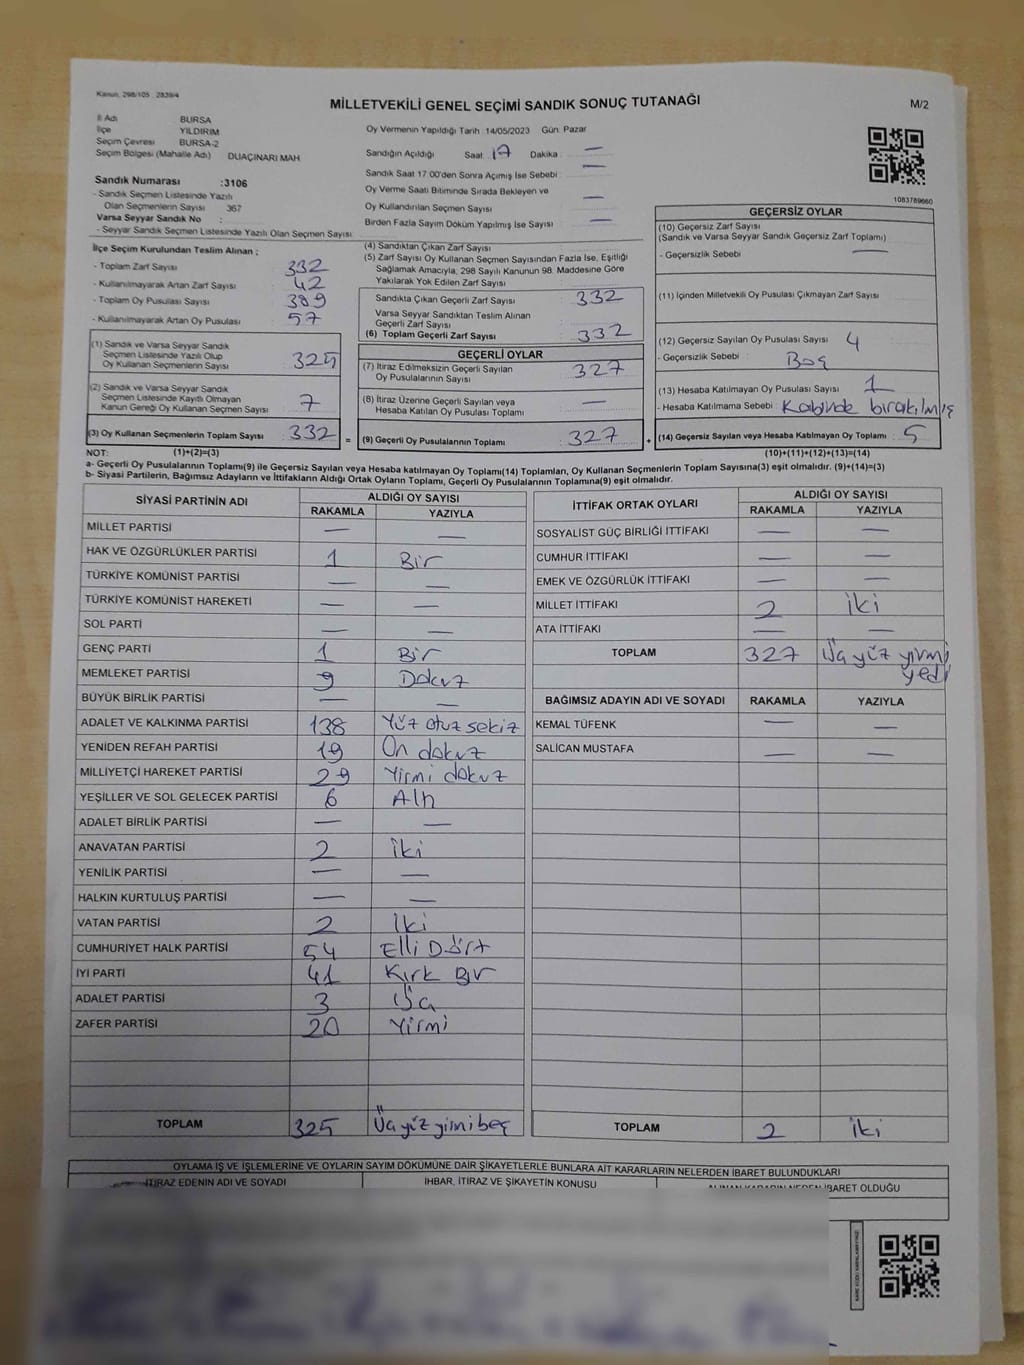 Kanun, 298/105 2839/4
MİLLETVEKİLİ GENEL SEÇİMİ SANDIK SONUÇ TUTANAĞI
M/2
İl Adı BURSA
İlçe YILDIRIM
Seçim Çevresi BURSA-2
Seçim Bölgesi (Mahalle Adı) DUAÇINARI MAH
Sandık Numarası :3106
- Sandık Seçmen Listesinde Yazılı
Olan Seçmenlerin Sayısı 367
Varsa Seyyar Sandık No :
- Seyyar Sandık Seçmen Listesinde Yazılı Olan Seçmen Sayısı
Oy Vermenin Yapıldığı Tarih :14/05/2023 Gün: Pazar
Sandığın Açıldığı Saat: 17 Dakika : —
Sandık Saat 17:00'den Sonra Açımış İse Sebebi : —
Oy Verme Saati Bitiminde Sırada Bekleyen ve
Oy Kullandırılan Seçmen Sayısı : —
Birden Fazla Sayım Döküm Yapılmış İse Sayısı : —
1083789660
İlçe Seçim Kurulundan Teslim Alınan ;
- Toplam Zarf Sayısı 332
- Kullanılmayarak Artan Zarf Sayısı 42
- Toplam Oy Pusulası Sayısı 389
- Kullanılmayarak Artan Oy Pusulası 57
(1) Sandık ve Varsa Seyyar Sandık
Seçmen Listesinde Yazılı Olup
Oy Kullanan Seçmenlerin Sayısı 325
(2) Sandık ve Varsa Seyyar Sandık
Seçmen Listesinde Kayıtlı Olmayan
Kanun Gereği Oy Kullanan Seçmen Sayısı 7
(3) Oy Kullanan Seçmenlerin Toplam Sayısı 332 =
(4) Sandıktan Çıkan Zarf Sayısı :
(5) Zarf Sayısı Oy Kullanan Seçmen Sayısından Fazla İse, Eşitliği
Sağlamak Amacıyla, 298 Sayılı Kanunun 98. Maddesine Göre
Yakılarak Yok Edilen Zarf Sayısı :
Sandıkta Çıkan Geçerli Zarf Sayısı 332
Varsa Seyyar Sandıktan Teslim Alınan
Geçerli Zarf Sayısı
(6) Toplam Geçerli Zarf Sayısı 332
GEÇERLİ OYLAR
(7) İtiraz Edilmeksizin Geçerli Sayılan
Oy Pusulalarının Sayısı 327
(8) İtiraz Üzerine Geçerli Sayılan veya
Hesaba Katılan Oy Pusulası Toplamı —
(9) Geçerli Oy Pusulalarının Toplamı 327 +
GEÇERSİZ OYLAR
(10) Geçersiz Zarf Sayısı
(Sandık ve Varsa Seyyar Sandık Geçersiz Zarf Toplamı)
- Geçersizlik Sebebi : —
(11) İçinden Milletvekili Oy Pusulası Çıkmayan Zarf Sayısı
(12) Geçersiz Sayılan Oy Pusulası Sayısı 4
- Geçersizlik Sebebi : Boş
(13) Hesaba Katılmayan Oy Pusulası Sayısı 1
- Hesaba Katılmama Sebebi : Kabinde bırakılmış
(14) Geçersiz Sayılan veya Hesaba Katılmayan Oy Toplamı 5
NOT: (1)+(2)=(3) (10)+(11)+(12)+(13)=(14)
a- Geçerli Oy Pusulalarının Toplamı(9) ile Geçersiz Sayılan veya Hesaba katılmayan Oy Toplamı(14) Toplamları, Oy Kullanan Seçmenlerin Toplam Sayısına(3) eşit olmalıdır. (9)+(14)=(3)
b- Siyasi Partilerin, Bağımsız Adayların ve İttifakların Aldığı Ortak Oyların Toplamı, Geçerli Oy Pusulalarının Toplamına(9) eşit olmalıdır.
SİYASİ PARTİNİN ADI ALDIĞI OY SAYISI
RAKAMLA YAZIYLA
MİLLET PARTİSİ — —
HAK VE ÖZGÜRLÜKLER PARTİSİ 1 Bir
TÜRKİYE KOMÜNİST PARTİSİ — —
TÜRKİYE KOMÜNİST HAREKETİ — —
SOL PARTİ — —
GENÇ PARTİ 1 Bir
MEMLEKET PARTİSİ 9 Dokuz
BÜYÜK BİRLİK PARTİSİ — —
ADALET VE KALKINMA PARTİSİ 138 Yüz otuz sekiz
YENİDEN REFAH PARTİSİ 19 On dokuz
MİLLİYETÇİ HAREKET PARTİSİ 29 Yirmi dokuz
YEŞİLLER VE SOL GELECEK PARTİSİ 6 Altı
ADALET BİRLİK PARTİSİ — —
ANAVATAN PARTİSİ 2 iki
YENİLİK PARTİSİ — —
HALKIN KURTULUŞ PARTİSİ — —
VATAN PARTİSİ 2 iki
CUMHURİYET HALK PARTİSİ 54 Elli Dört
İYİ PARTİ 41 Kırk Bir
ADALET PARTİSİ 3 Üç
ZAFER PARTİSİ 20 Yirmi
TOPLAM 325 Üçyüz yirmi beş
İTTİFAK ORTAK OYLARI ALDIĞI OY SAYISI
RAKAMLA YAZIYLA
SOSYALİST GÜÇ BİRLİĞİ İTTİFAKI — —
CUMHUR İTTİFAKI — —
EMEK VE ÖZGÜRLÜK İTTİFAKI — —
MİLLET İTTİFAKI 2 iki
ATA İTTİFAKI — —
TOPLAM 327 Üç yüz yirmi
yedi
BAĞIMSIZ ADAYIN ADI VE SOYADI RAKAMLA YAZIYLA
KEMAL TÜFENK — —
SALİCAN MUSTAFA — —
TOPLAM 2 iki
OYLAMA İŞ VE İŞLEMLERİNE VE OYLARIN SAYIM DÖKÜMÜNE DAİR ŞİKAYETLERLE BUNLARA AİT KARARLARIN NELERDEN İBARET BULUNDUKLARI
İTİRAZ EDENİN ADI VE SOYADI İHBAR, İTİRAZ VE ŞİKAYETİN KONUSU ALINAN KARARIN NEDEN İBARET OLDUĞU